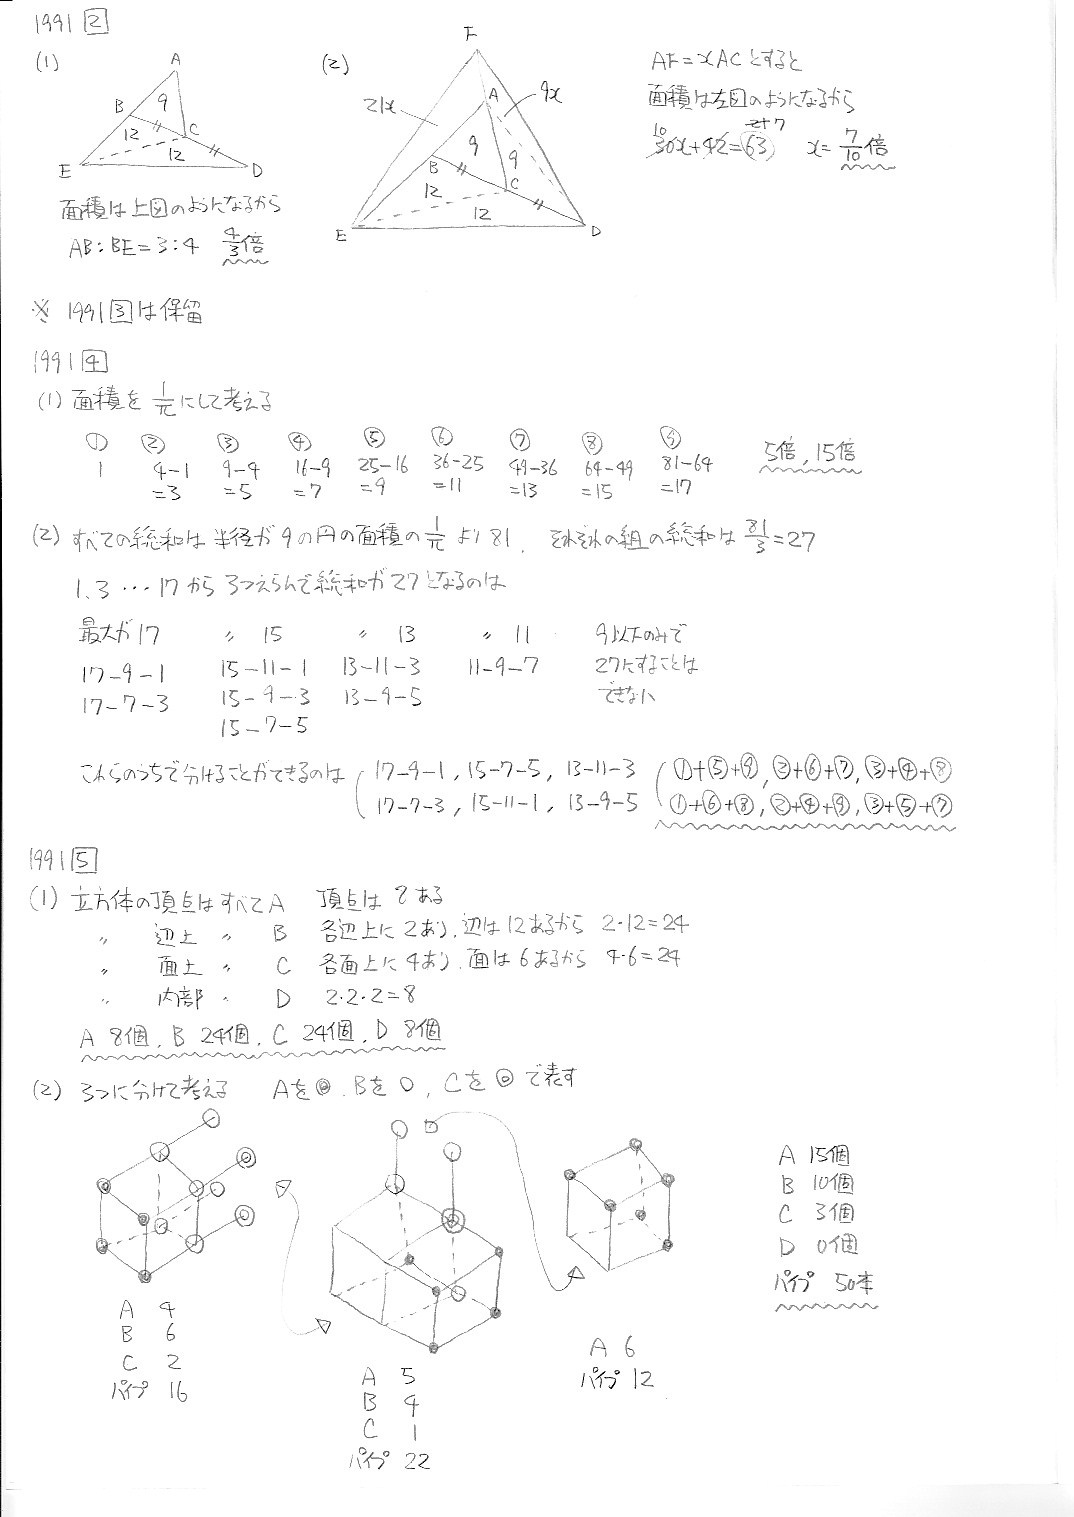 1991 2
(1)
A
B
9
C
12
12
E
D
面積は上図のようになるから
AB:BE=3:4 4/3倍
(2)
F
21x
9x
A
9
9
B
C
12
12
E
D
AF=xACとすると
面積は左図のようになるから
30x+42=63 x=7/10倍
10
21 7
※ 1991 3 は保留
1991 4
(1) 面積を 1/π にして考える
① ② ③ ④ ⑤ ⑥ ⑦ ⑧ ⑨
1 4-1 9-4 16-9 25-16 36-25 49-36 64-49 81-64
=3 =5 =7 =9 =11 =13 =15 =17
5倍, 15倍
(2) すべての総和は 半径が9の円の面積の 1/π より81. それぞれの組の総和は 81/3=27
1、3 … 17から 3つえらんで総和が27となるのは
最大が17 〃 15 〃 13 〃 11 9以下のみで
17-9-1 15-11-1 13-11-3 11-9-7 27にすることは
17-7-3 15-9-3 13-9-5 できない
15-7-5
これらのうちで分けることができるのは
17-9-1, 15-7-5, 13-11-3
17-7-3, 15-11-1, 13-9-5
①+⑤+⑨, ②+⑥+⑦, ③+④+⑧
①+⑥+⑧, ②+④+⑨, ③+⑤+⑦
1991 5
(1) 立方体の頂点はすべてA 頂点は 8ある
〃 辺上 〃 B 各辺上に2あり、辺は12あるから 2・12=24
〃 面上 〃 C 各面上に4あり、面は6あるから 4・6=24
〃 内部 〃 D 2・2・2=8
A 8個. B 24個. C 24個. D 8個
(2) 3つに分けて考える Aを● . Bを○ , Cを◎で表す
A 4
B 6
C 2
パイプ 16
A 5
B 4
C 1
パイプ 22
A 6
パイプ 12
A 15個
B 10個
C 3個
D 0個
パイプ 50本